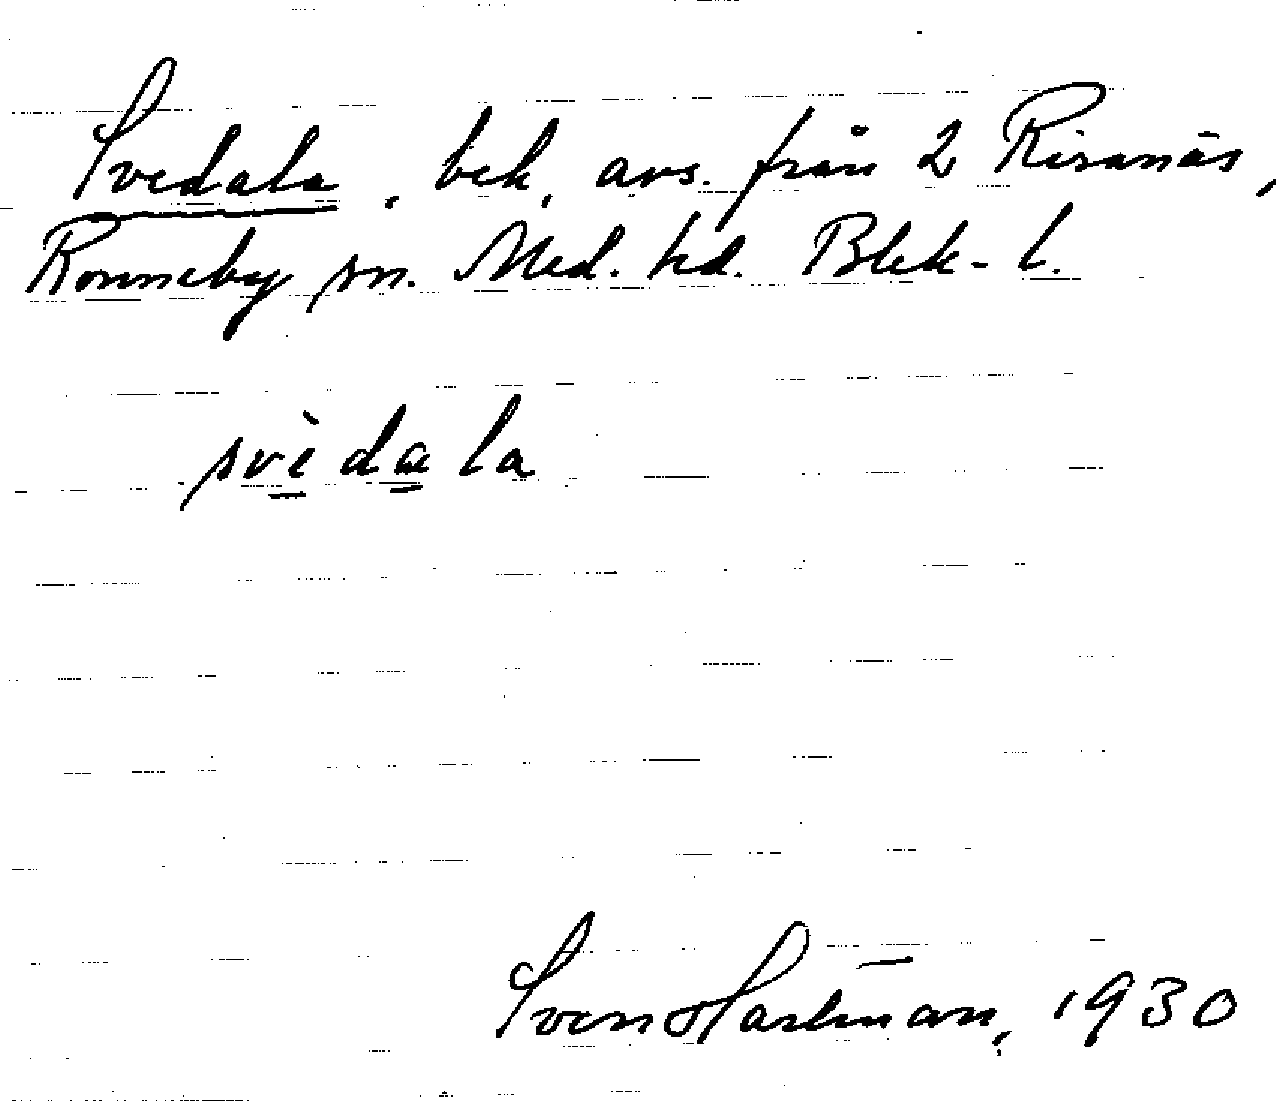 Svedala, bek, avs. från 2 Risanäs,
Ronneby sn. Med. hd. Blek- l.
svèdala
Sven Hartman, 1930